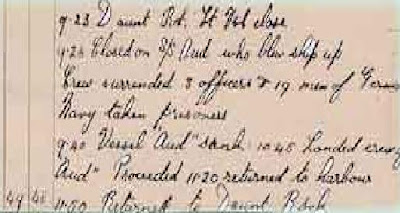 9.23 Daunt Rk. Lt Vsl close
9.25 Closed on S/S Aud who blew ship up
Crew surrended 3 officers & 19 men of German
Navy taken prisoners
9.40 Vessel "Aud" sank. 10.45 Landed crew
Aud" Proceeded 11.20 returned to harbour
11.50 Returned to Daunt Rock